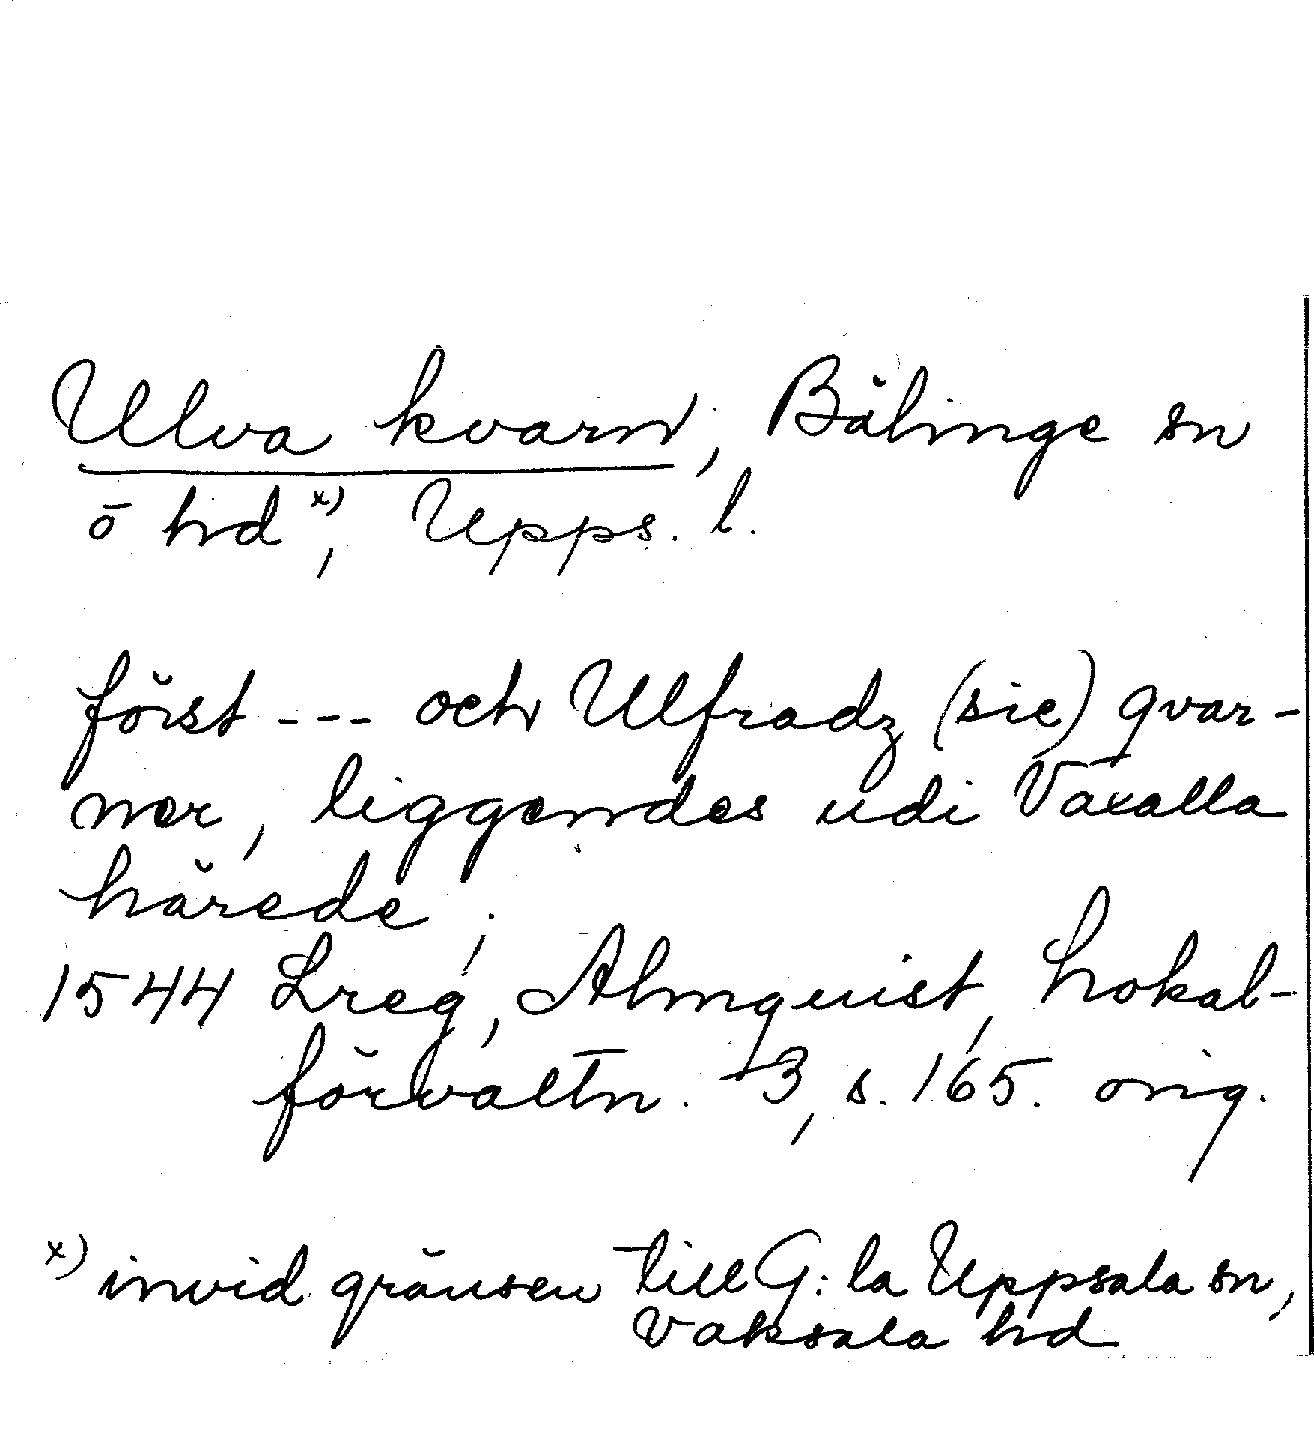 Ulva kvarn, Bälinge sn
o hd x), Upps. l.
först --- och Ulfradz (sic) qvar-
ner, liggendes udi Vaxalla
härede;
1544 Lreg, Almquist, Lokal-
förvaltn. 3, s. 165. orig.
x) invid gränsen till G:la Uppsala sn,
Vaksala hd